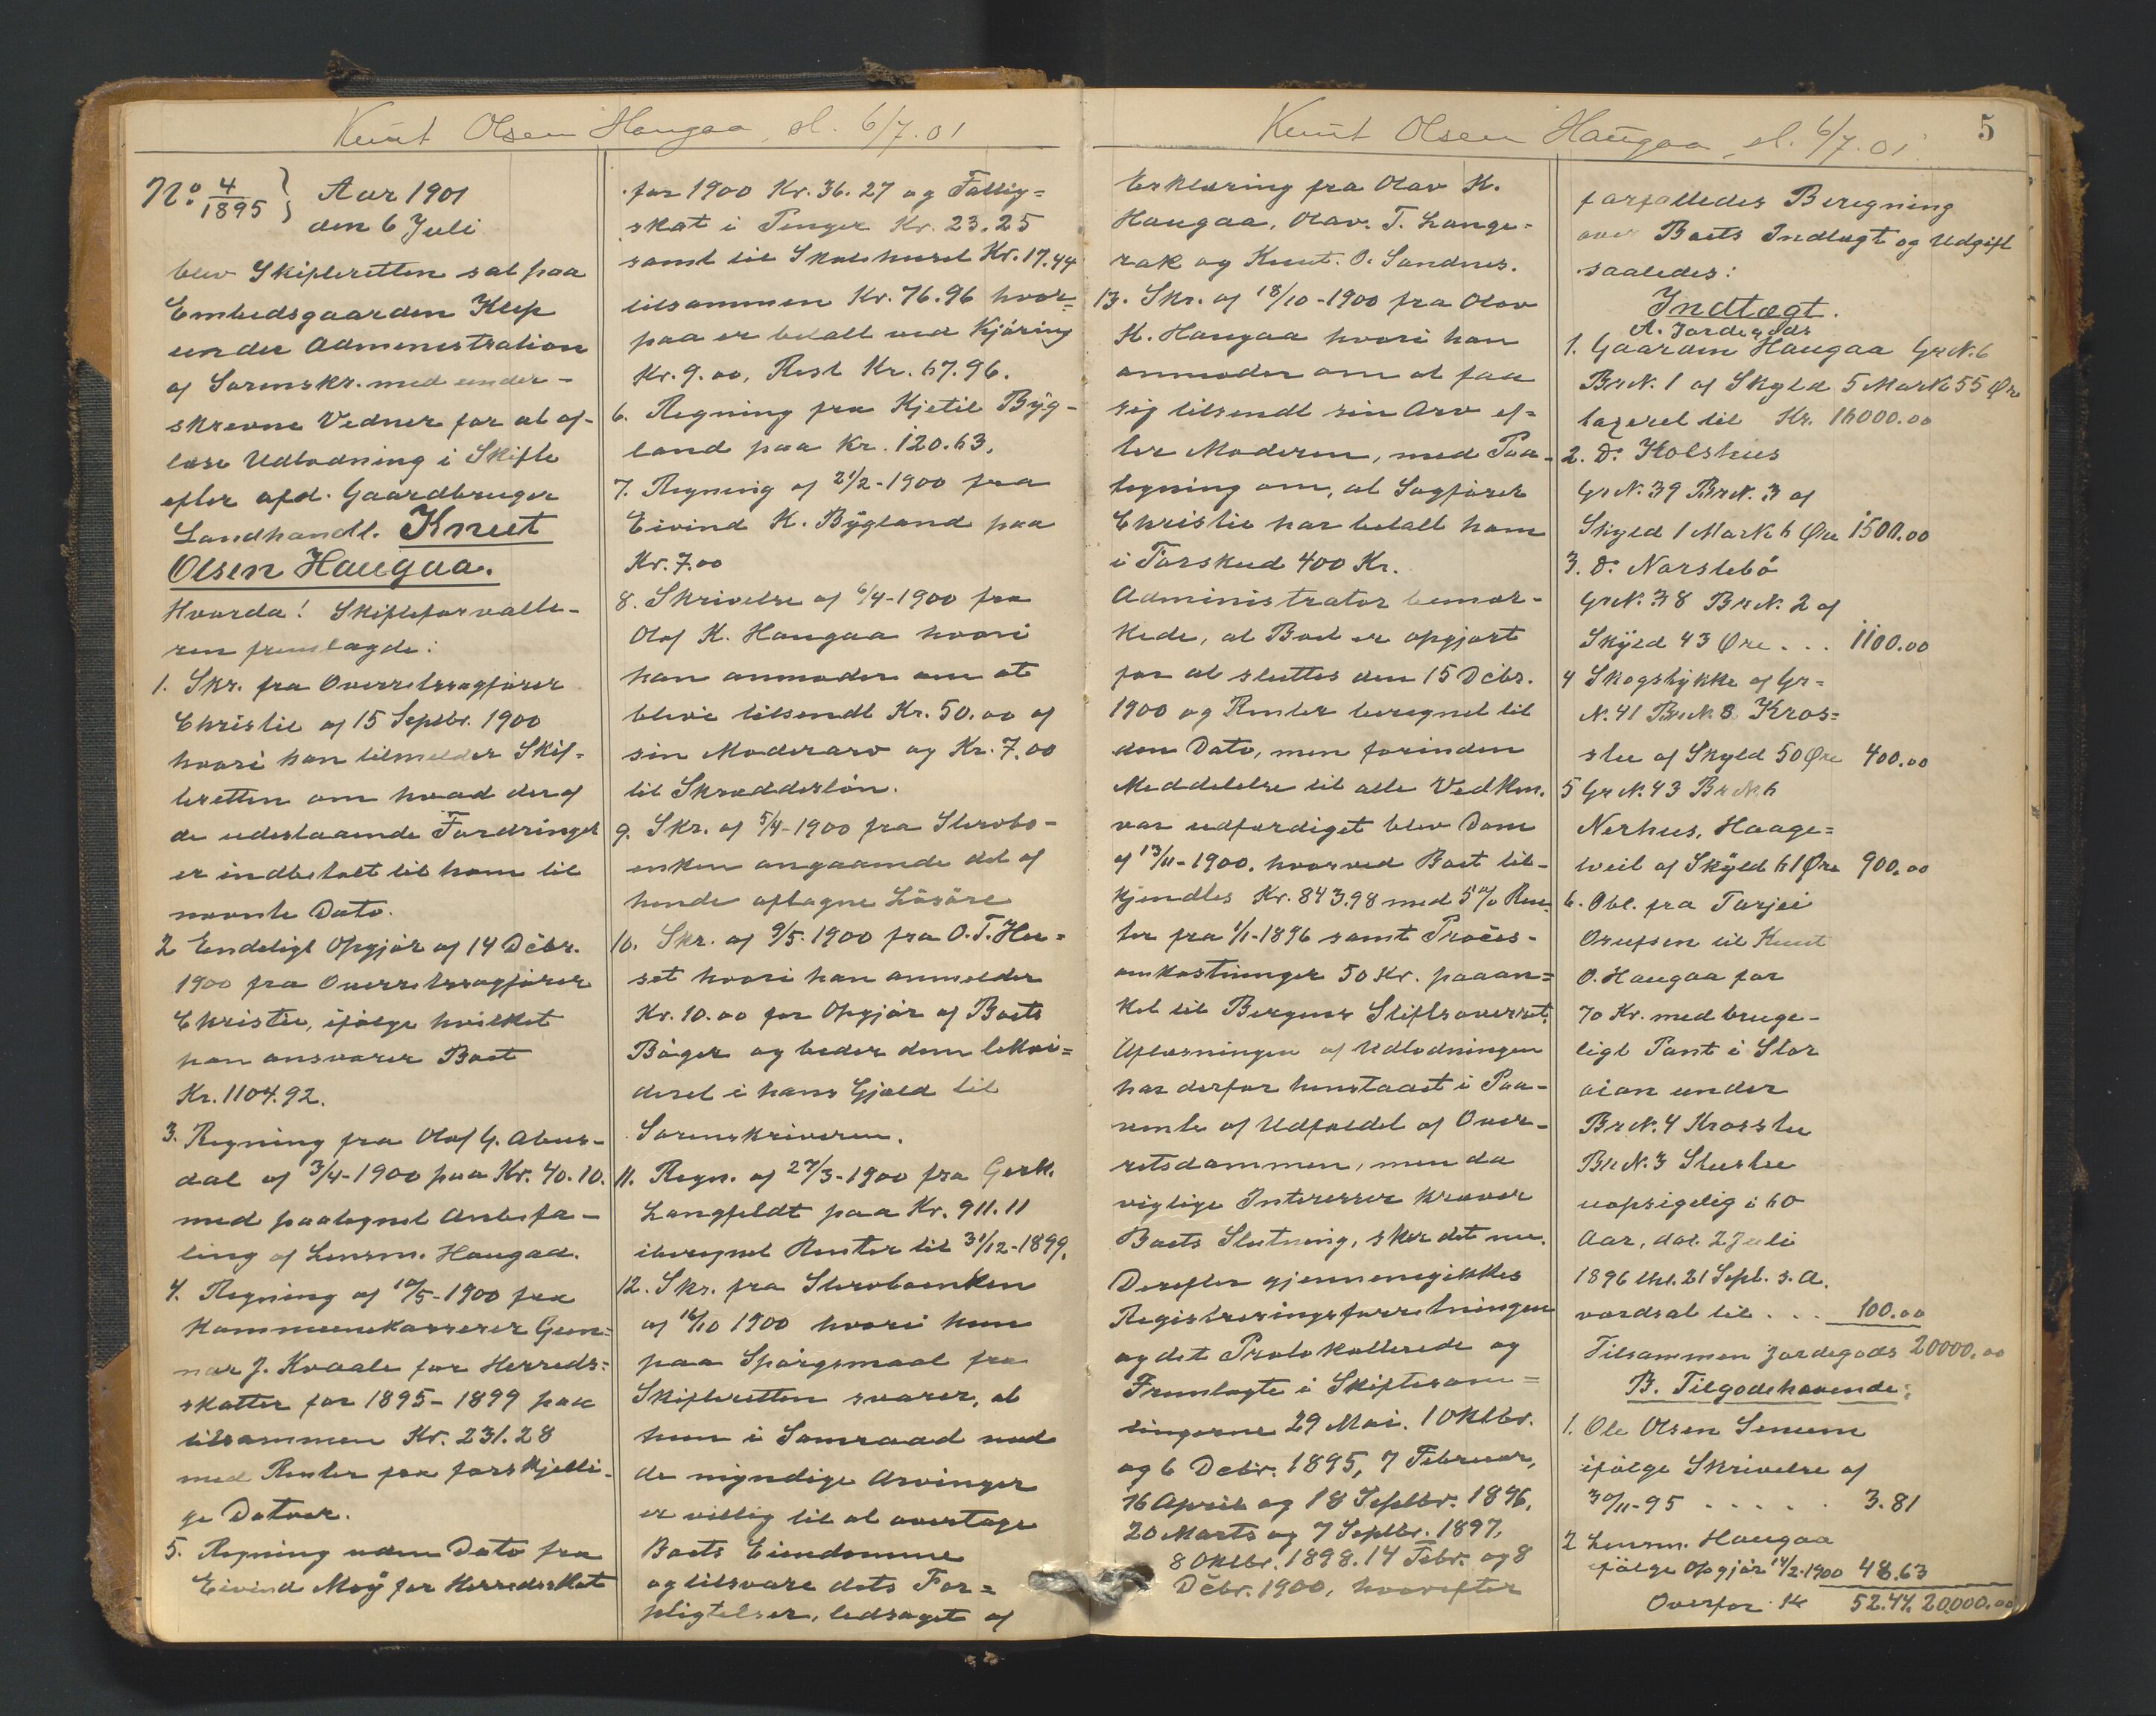 Knut Olsen Haugaa, sl. 6/7.01
No. 4/1895 } Aar 1901
den 6 Juli
blev Skifteretten sat paa
Embedsgaarden Klep
under Administration
af Sorenskr. med under-
skrevne Vidner for at af-
læse Udlodning i Skifte
efter afd. Gaardbruger
Landhandl. Knut
Olsen Haugaa.
Hvorda! Skifteforvalte-
ren fremlagde:
1. Skr. fra Overretssagfører
Christie af 15 Septbr. 1900
hvori han tilmelder Skif-
teretten om hvad der af
de udestaaende Fordringer
er indbetalt til ham til
nævnte Dato.
2 Endeligt Opgjør af 14 Decbr.
1900 fra Overretssagfører
Christie, ifølge hvilket
han ansvarer Boet
Kr. 1104.92.
3. Regning fra Olaf G. Abus-
dal af 3/4-1900 paa Kr. 40.10.
med paategnet Anbefa-
ling af Lensm. Haugaa.
4. Regning af 10/5-1900 fra
Kommunekasserer Gun-
nar J. Kvaale for Herreds-
skatter for 1895-1899 paa
tilsammen Kr. 231.28
med Renter fra forskjelli-
ge Datoer.
5. Regning uden Dato fra
Eivind Moÿ for Herredsskat
for 1900 Kr. 36.27 og Fattig=
skat i Penger Kr. 23.25
samt til Skolehuset Kr. 17.44
tilsammen Kr. 76.96 hvor=
paa er betalt ved Kjøring
Kr. 9.00, Rest Kr. 67.96.
6. Regning fra Kjetil Bÿg-
land paa Kr. 120.63.
7. Regning af 21/2-1900 fra
Eivind K. Bÿgland paa
Kr. 7.00
8. Skrivelse af 6/4-1900 fra
Olaf K. Haugaa hvori
han anmoder om at
blive tilsendt Kr. 50.00 af
sin Moderarv og Kr. 7.00
til Skrædderløn.
9. Skr. af 5/4-1900 fra Stervbo-
enken angaaende det af
hende aftagne Løsøre
10. Skr. af 9/5.1900 fra O. T. Hu=
set hvori han anmelder
Kr. 10.00 for Opgjør af Boets
Bøger og beder dem lekvi=
deret i hans Gjæld til
Sorenskriveren.
11. Regn. af 27/3-1900 fra Gerh.
Langfeldt paa Kr. 911.11
iberegnet Renter til 31/12-1899.
12. Skr. fra Stervboenken
af 16/10 1900 hvori hun
paa Spørgsmaal fra
Skifteretten svarer, at
hun i Samraad med
de myndige Arvinger
er villig til at overtage
Boets Eiendomme
og tilsvare dets For=
pligtelser, ledsaget af
Knut Olsen Haugaa, sl. 6/7.01.
5
Erklæring fra Olav K.
Haugaa, Olav. T. Lange-
rak og Knut. O. Sandnes.
13. Skr. af 18/10-1900 fra Olav
K. Haugaa hvori han
anmoder om at faa
sig tilsendt sin Arv ef=
ter Moderen, med Paa-
tegning om, at Sagfører
Christie har betalt ham
i Forskud 400 Kr.
Administrator bemær-
kede, at Boet er opgjort
for at sluttes den 15 Decbr.
1900 og Renter beregnet til
den Dato, men forinden
Meddelelse til alle Vedkm.
var udfærdiget blev Dom
af 13/11-1900, hvorved Boet til-
kjendtes Kr. 843.98 med 5% Ren-
ter fra 1/1-1896 samt Proces-
omkostninger 50 Kr. paaan=
ket til Bergens Stiftsoverret.
Aflæsningen af Udlodningen
har derfor henstaaet i Paa-
vente af Udfaldet af Over-
retsdommen, men da
vigtige Interesser kræver
Boets Slutning, sker det nu.
Derefter gjennemgikkes
Registreringsforretningen
og det Protokollerede og
Fremlagte i Skiftesam=
lingerne 29 Mai. 1 Oktbr.
og 6 Decbr. 1895, 7 Februar,
16 April og 18 Septbr. 1896,
20 Marts og 7 Septbr. 1897,
8 Oktbr. 1898. 14 Febr. og 8
Decbr. 1900, hvorefter
forfattedes Beregning
over Boets Indtægt og Udgift
saaledes:
Indtægt.
A. Jordegods
1. Gaarden Haugaa Gr N. 6
Br N. 1 af Skyld 5 Mark 55 Øre
taxeret til Kr. 16000.00
2. Do Kolshus
Gr N. 39 Br N. 3 af
Skyld 1 Mark 6 Øre 1500.00
3. Do Narstebø
Gr N. 38 Br N. 2 af
Skÿld 43 Øre . . . 1100.00
4 Skogstykke af Gr=
N. 41 Br N. 8 Kros=
slie af Skyld 50 Øre 400.00
5 Gr N. 43 Br N. 6
Nerhus, Haage=
tveit af Skÿld 61 Øre 900.00
6. Obl. fra Tarjei
til Knut
O. Haugaa for
70 Kr. med bruge-
ligt Pant i Stor
oian under
Br N. 4 Krosslie
Br N. 3
uopsigelig i 60
Aar, dat. 2 Juli
1896 thl. 21 Sept. s. A.
værdsat til . . . 100.00
Tilsammen Jordegods 20000.00
B. Tilgodehavende:
1. Ole Olsen Senum
ifølge Skrivelse af
30/11-95 . . . . . 3.81
2 Lensm. Haugaa
ifølge Opgjør 14/2-1900 48.63
Overfør. Kr 52.44. 20000.00